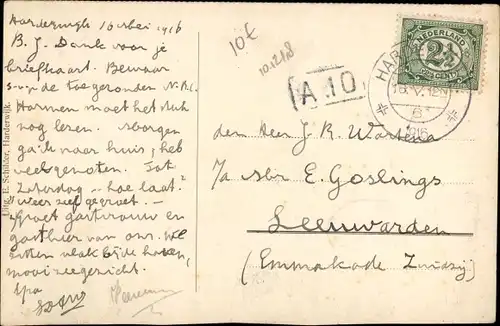 Harderwijk 16 Mei 1916
B. J. Dank voor je
briefkaart. Bewaar
de toegezonden N.R.C.
Harmen moet het stuk
nog lezen. Morgen
ga ik naar huis, heb
veel genoten. Tot
Zaterdag – hoe laat?
weer zelf gegroet. –
Groet gastvrouw en
gastheer van ons. We
zitten vlak bij de haven,
mooi zeegezicht.
Uitg. E. Schilder, Harderwijk.
10€
10.1218
A 10
NEDERLAND
2½
CENT
HAR
16.V.12
1916
den Heer J. R. Warterna
p/a Mr E. Goslings
Leeuwarden
(Emmakade Zuidzij)